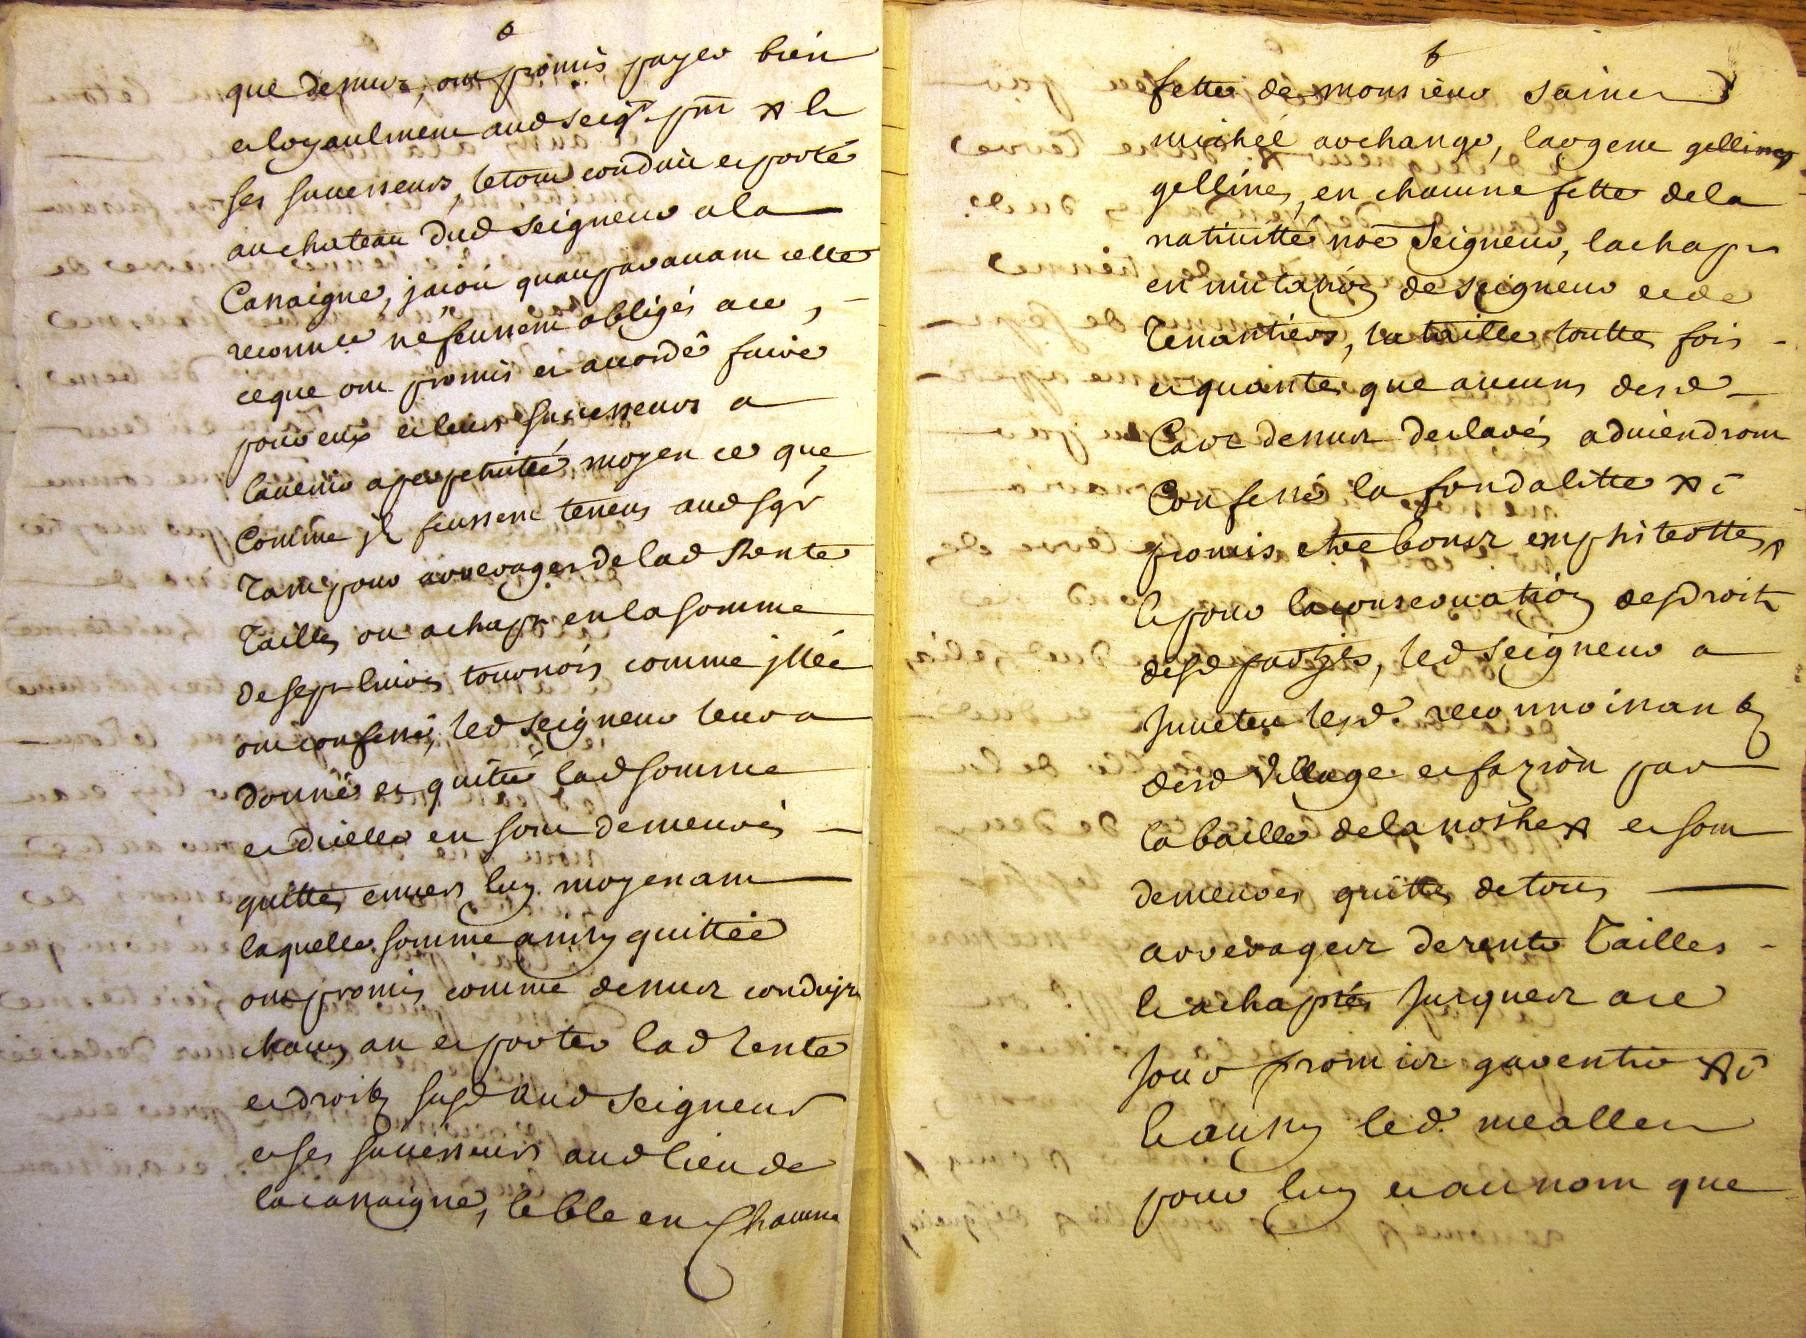 que dessus, ont promis payer bien
et loyaulment aud seigr pnt & a
ses successeurs, le tout conduit et porté
au chateau dud seigneur a la
Cassaigne, jaçoit quauparavant cette
reconnce ne feussent obligés a ce,
ce que ont promis et accordé faire
pour eux et leurs successeurs a
l'auenir a perpetuité moyen ce que
Comme jl feussent teneus aud sgr
Tant pour arrerages de lad Rente
Tailles ou achapt en la somme
de sept liures tournois comme jllec
ont confessé, led seigneur leur a
donnés et quitté lad somme
et d'icelle en sont demeurés
quittes enuers luy moyenant
laquelle somme ainsy quittée
ont promis comme dessus conduire
chacun an et porter lad rente
et droits susd aud seigneur
et ses successeurs aud lieu de
lacassaigne, le ble en Chacune
fette de monsieur sainct
michel archange, l'argent gellines
gellines, en chacune fette de la
natiuitté noe seigneur, lachapt
en mutation de seigneur et de
Tenantiers, la taille touttes fois
et quantes que aucuns desd
Cas dessus declarés aduiendront
Confessé la fondalitte &
promis etre bons emphiteottes,
et pour la conseruation des droits
desd parties, led seigneur a
Inuetu lesd. reconnoissants
desd village et fazion par
la baille de la noshe & et sont
demeures quittes de tous
arrerages de rente Tailles
et achaptés jusques a ce
jour promis garentir &
et ausy led. meallet
pour luy et au nom que